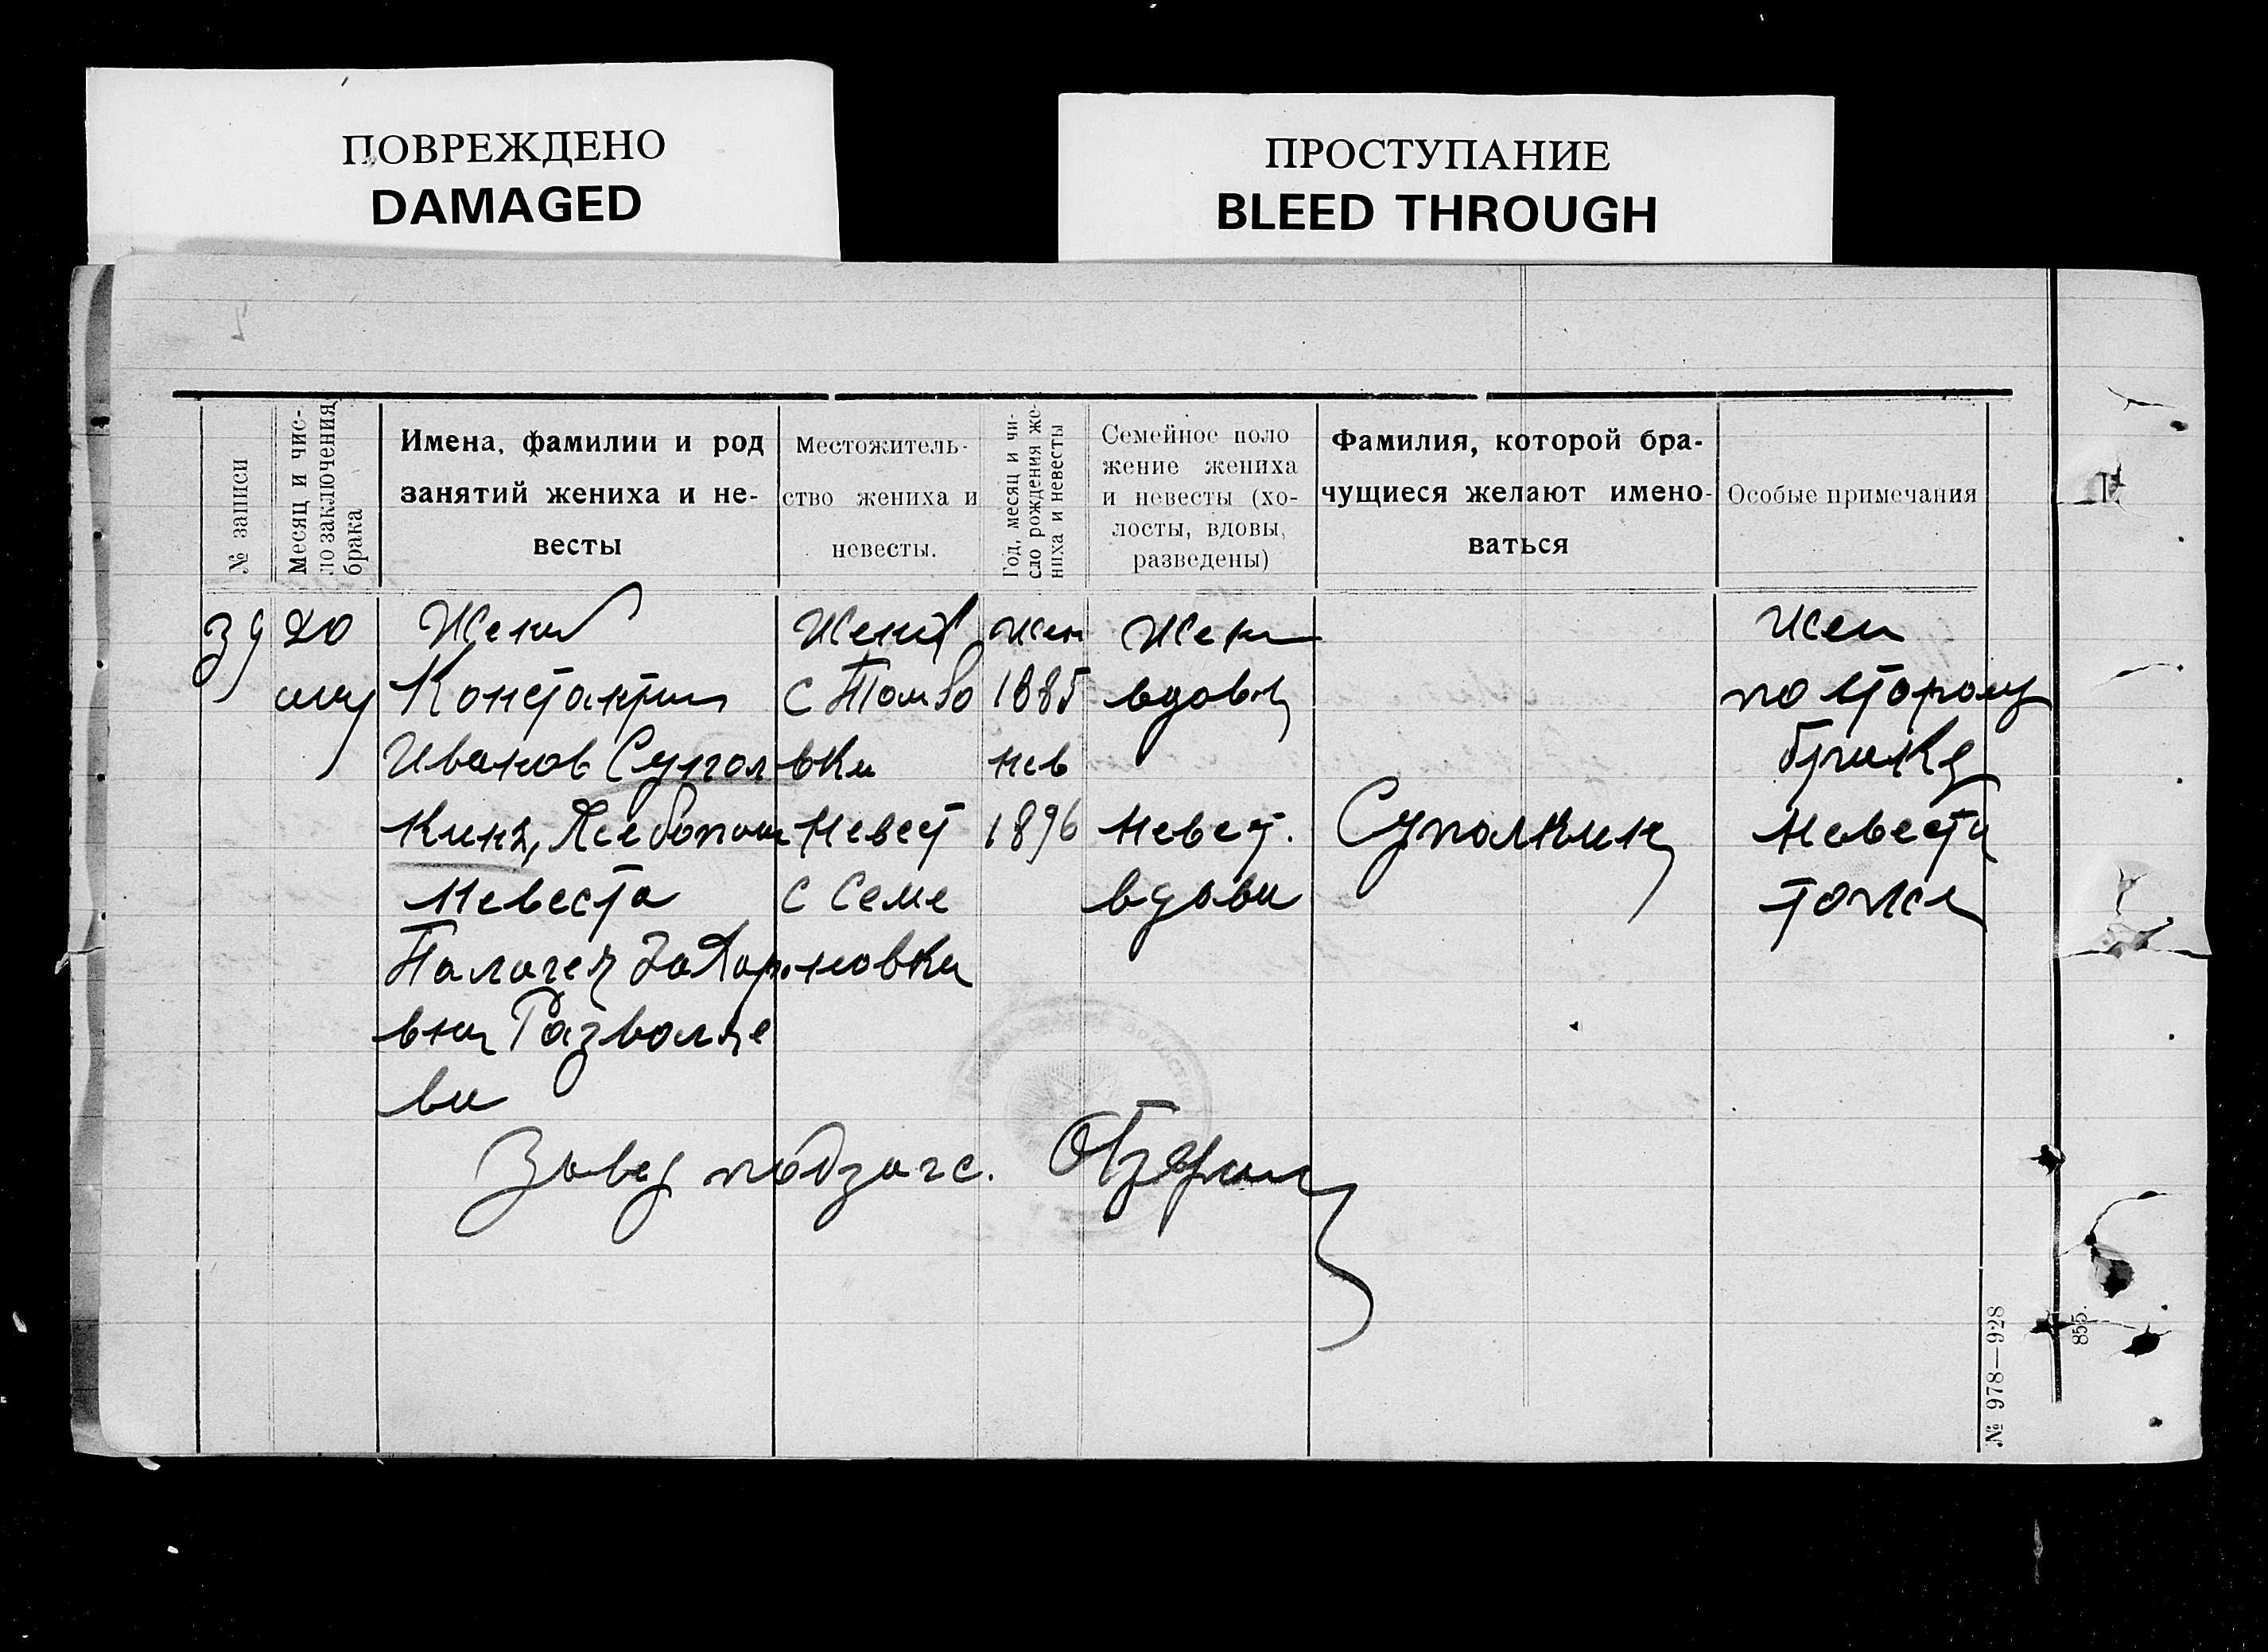 ПОВРЕЖДЕНО
DAMAGED
ПРОСТУПАНИЕ
BLEED THROUGH
№ записи
Месяц и чис-
ло заключения
брака
Имена, фамилии и род
занятий жениха и не-
весты
Местожитель-
ство жениха и
невесты.
Год, месяц и чи-
сло рождения же-
ниха и невесты
Семейное поло
жение жениха
и невесты (хо-
лосты, вдовы,
разведены)
Фамилия, которой бра-
чущиеся желают имено-
ваться
Особые примечания
39
20
Жених
Константин
Иванов Супол
кинъ, Хлебопаш
Невеста
Палагея Захаро
вна Развозже
ва
Жених
С
вки
Невест
с Семе
новки
жен
1885
нев
1896
Жени
вдовец
Невест.
вдова
Суполкин
Жен
по второму
браку
Невеста
тоже
Завед подзагс.
№ 978—928
855.